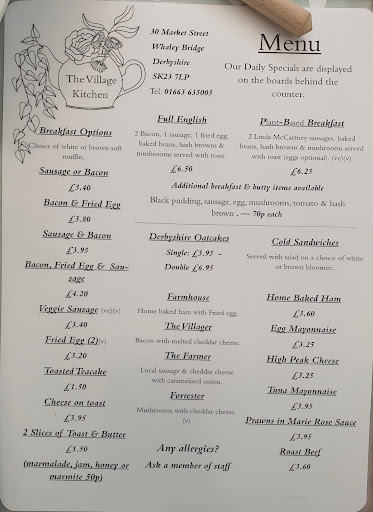 The Village
Kitchen
30 Market Street
Whaley Bridge
Derbyshire
SK23 7LP
Tel: 01663 635003
Menu
Our Daily Specials are displayed
on the boards behind the
counter.
Breakfast Options
Choice of white or brown soft
muffin.
Sausage or Bacon
£3.40
Bacon & Fried Egg
£3.80
Sausage & Bacon
£3.95
Bacon, Fried Egg & Sau-
sage
£4.20
Veggie Sausage (ve)(v)
£3.40
Fried Egg (2)(v)
£3.20
Toasted Teacake
£1.50
Cheese on toast
£3.95
2 Slices of Toast & Butter
£1.50
(marmalade, jam, honey or
marmite 50p)
Full English
2 Bacon, 1 sausage, 1 fried egg,
baked beans, hash browns &
mushrooms served with toast.
£6.50
Plant-Based Breakfast
2 Linda McCartney sausages, baked
beans, hash browns & mushrooms served
with toast (eggs optional). (ve)(v)
£6.25
Additional breakfast & butty items available
Black pudding, sausage, egg, mushrooms, tomato & hash
brown . — 70p each
Derbyshire Oatcakes
Single: £3.95 -
Double £6.95
Farmhouse
Home baked ham with Fried egg.
The Villager
Bacon with melted cheddar cheese.
The Farmer
Local sausage & cheddar cheese
with caramelised onion.
Forrester
Mushrooms with cheddar cheese.
(v)
Any allergies?
Ask a member of staff
Cold Sandwiches
Served with salad on a choice of white
or brown bloomer.
Home Baked Ham
£3.60
Egg Mayonnaise
£3.25
High Peak Cheese
£3.25
Tuna Mayonnaise
£3.95
Prawns in Marie Rose Sauce
£3.95
Roast Beef
£3.60